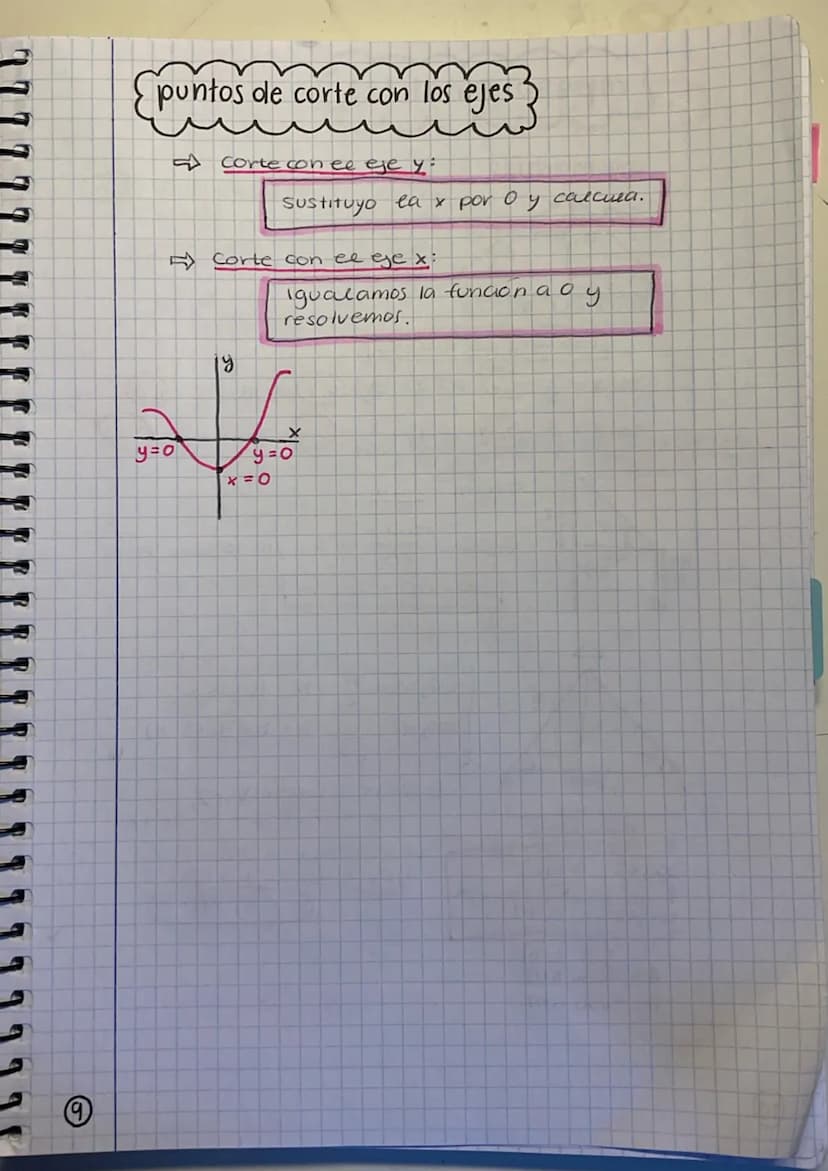 puntos de corte con los ejes
⇒ Corte con el eje y:
sustituyo la x por 0 y calcula.
⇒ Corte con el eje x:
igualamos la función a 0 y
resolvemos.
y
x
y=0
y=0
x=0
9